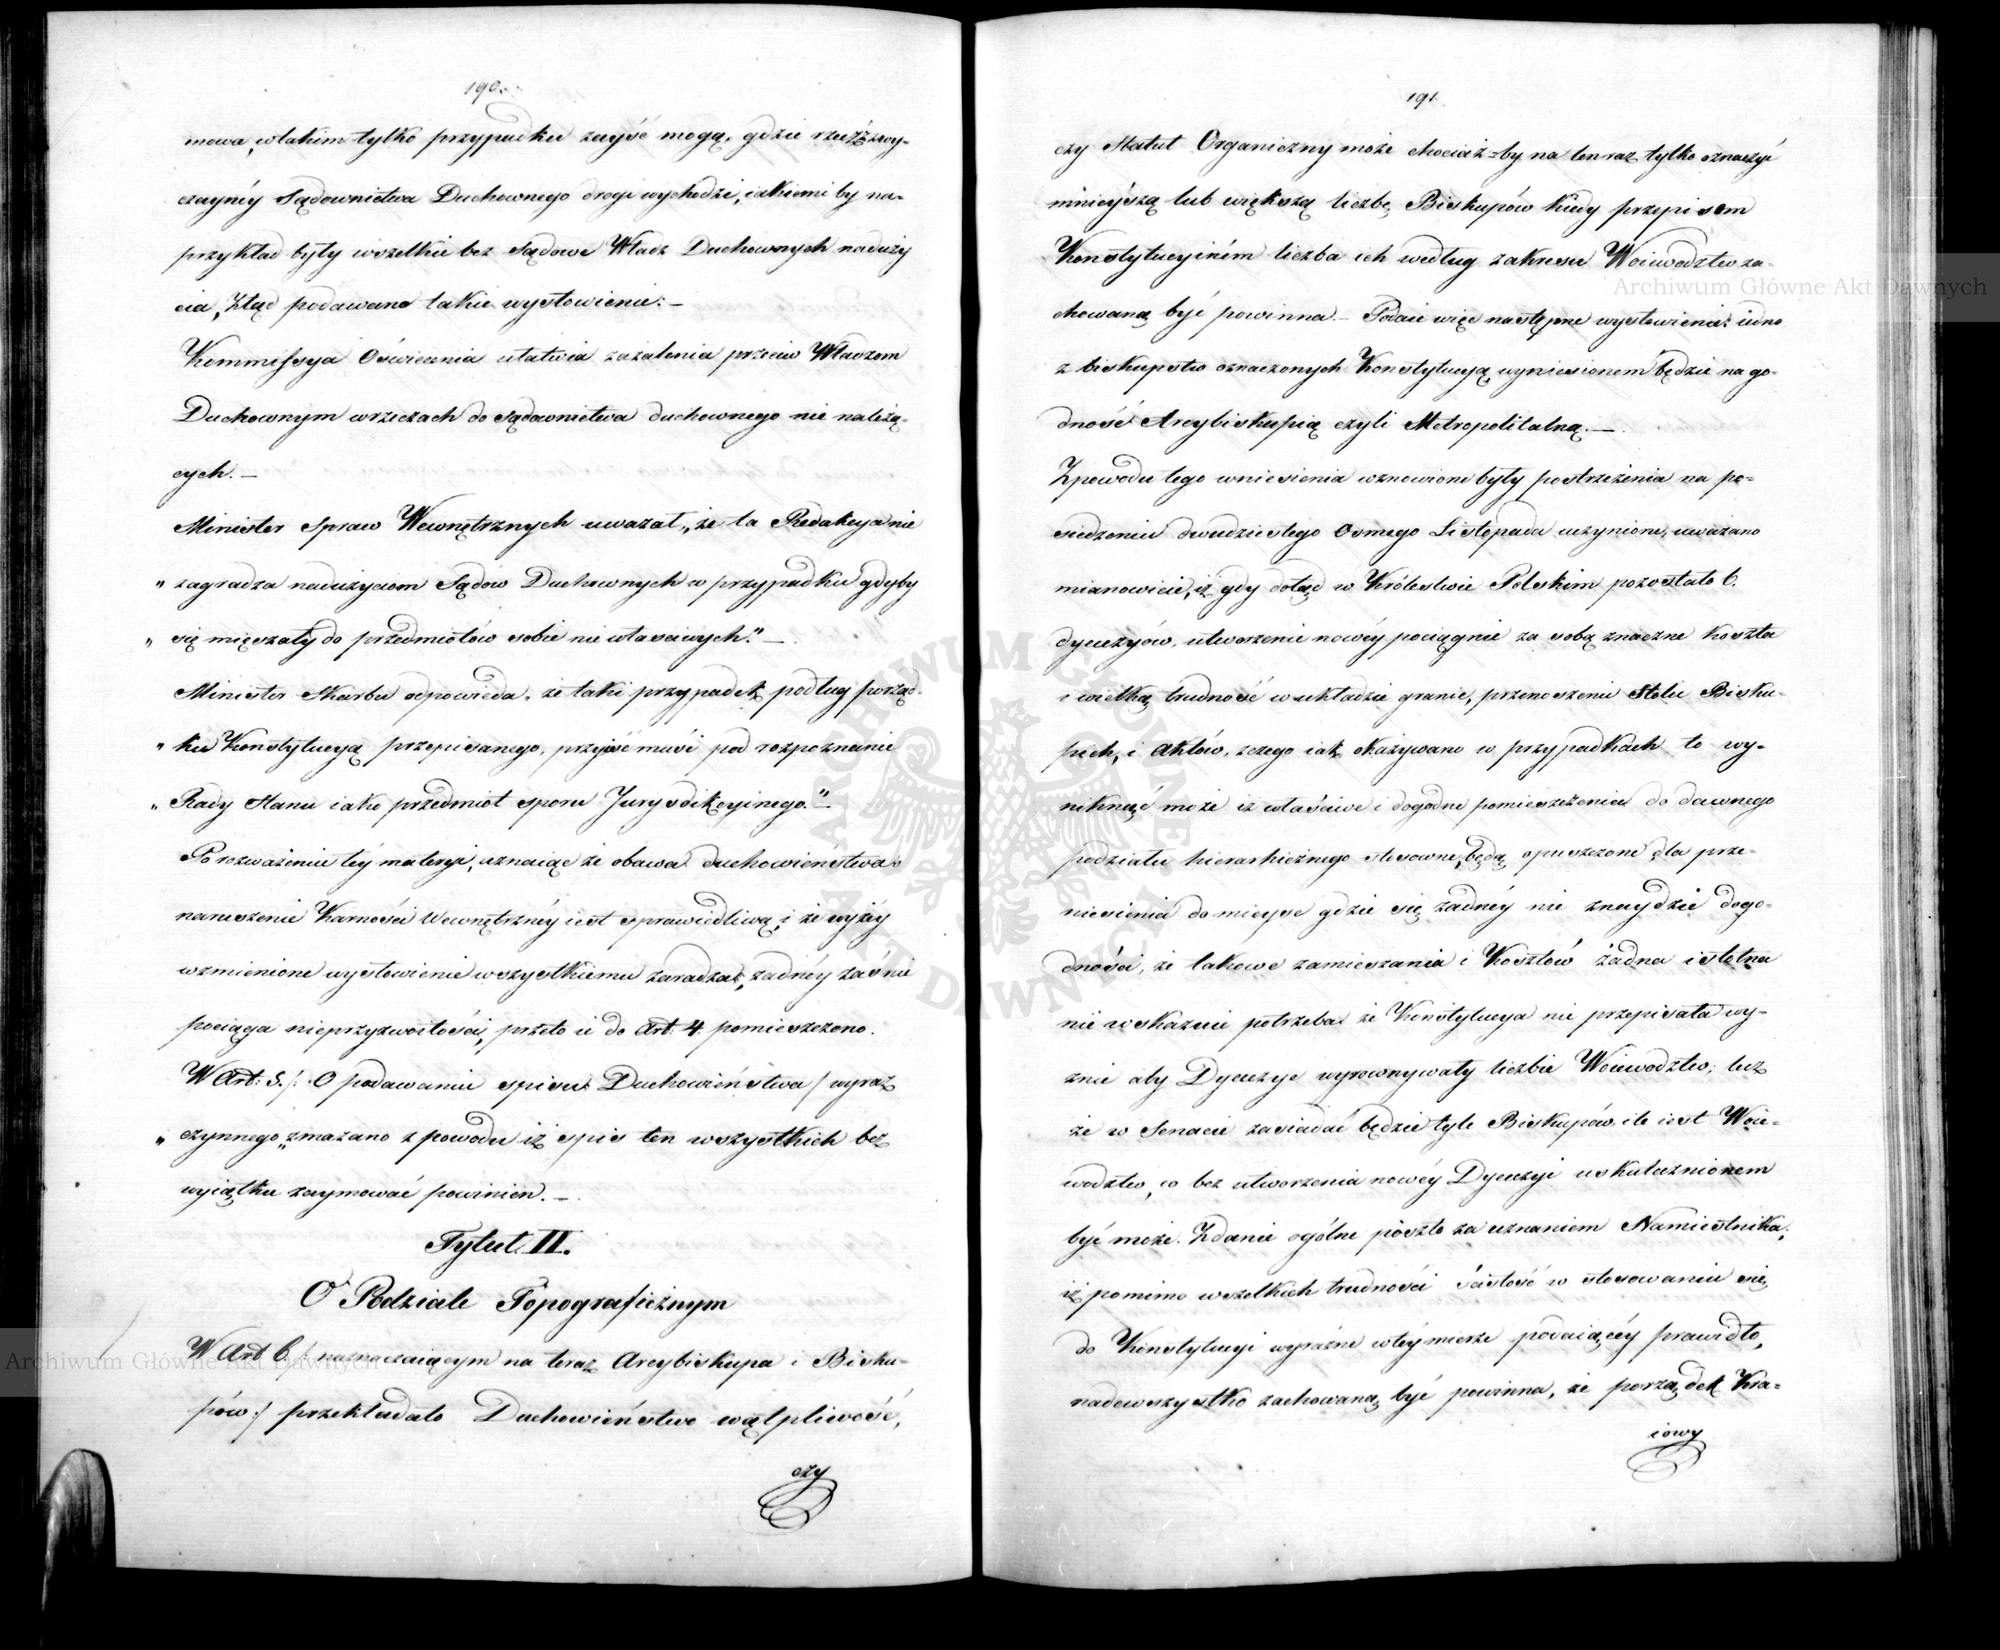 190.
mowa, w takim tylko przypadku zayść mogą, gdzie rzecz z zwy-
czaynéy Sądownictwa Duchownego drogi wychodzi, iakiemi by na-
przykład były wszelkie bez Sądowe Władz Duchownych naduży
cia, Ztąd podawano takie wysłowienie: —
Kommissya Oświecenia ułatwia zażalenia przeciw Władzom
Duchownym w rzeczach do Sądownictwa duchownego nie należą-
cych. —
Minister Spraw Wewnętrznych uważał, „że ta Redakcya nie
„ zagradza nadużyciom Sądów Duchownych w przypadku gdyby
„ się mięszały do przedmiotów sobie nie właściwych." —
Minister Skarbu odpowieda, że taki przypadek podług porząd-
„ ku Konstytucyą przepisanego, przyjść musi pod rozpoznanie
„ Rady Stanu iako przedmiot sporu Jurysdikcyinego." —
Po rozważeniu téy materyi, uznaiąc że obawa duchowieństwa o
naruszenie Karności Wewnętrznéy iest sprawiedliwą, i że wyżéy
wzmienione wysłowienie wszystkiemu zaradza, żadnéy zaś nie
pociąga nieprzyzwoitości, przeto ie do Art: 4 pomieszczono.
W Art: 5. /: O podawaniu spisu Duchowieństwa / wyraz
„ czynnego „ zmazano z powodu iż spis ten wszystkich bez
wyiątku zaymować powinien. —
Tytuł II.
O Podziale Topograficznym
W Art 6. /: naznaczaiącym na teraz Arcybiskupa i Bisku-
pów :/ przekładało Duchowieństwo wątpliwość,
czy
191.
czy Statut Organiczny może chociaż-by na ten raz tylko oznaczyć
mnieyszą lub większą liczbę Biskupów kiedy przepisem
Konstytucyiném liczba ich według zakresu Woiewodztw za-
chowaną być powinna. — Podaie więc następne wysłowienie: iedno
z biskupstw oznaczonych Konstytucyą, wyniesionem będzie na go-
dność Arcybiskupią czyli Metropolitalną. —
Z powodu tego wniesienia wznowione były postrzeżenia na po-
siedzeniu dwudziestego Osmego Listopada uczynione, uważano
mianowicie, iż gdy dotąd w Królestwie Polskim pozostało 6.
dyecezyów, utworzenie nowéy pociągnie za sobą znaczne koszta
i wielką trudność w układzie granic, przenoszeniu Stolic Bisku-
pich, i Aktów, z czego iak okazywano w przypadkach to wy-
niknąć może iż właściwe i dogodne pomieszczenia do dawnego
podziału hierarhicznego stosowne, będą opuszczone dla prze-
niesienia do mieysc gdzie się żadnéy nie znaydzie dogo-
dności, że takowe zamieszania i Kosztów żadna istotna
nie wskazuie potrzeba że Konstytucya nie przepisała wy-
znie aby Dyecezye wyrownywały liczbie Woiewodztw, lecz
że w Senacie zasiadać będzie tyle Biskupów ile iest Woie-
wodztw, co bez utworzenia nowéy Dyecezyi uskutecznionem
być może. Zdanie ogólne poszło za uznaniem Namiestnika,
iż pomimo wszelkich trudności ścisłość w stosowaniu się
do Konstytucyi wyraźne w téy mierze podaiącéy prawidło,
nadewszystko zachowaną być powinna, że porządek Kra-
iowy
Archiwum Główne Akt Dawnych
Archiwum Główne Akt Dawnych
ARCHIWUM GŁÓWNE AKT DAWNYCH